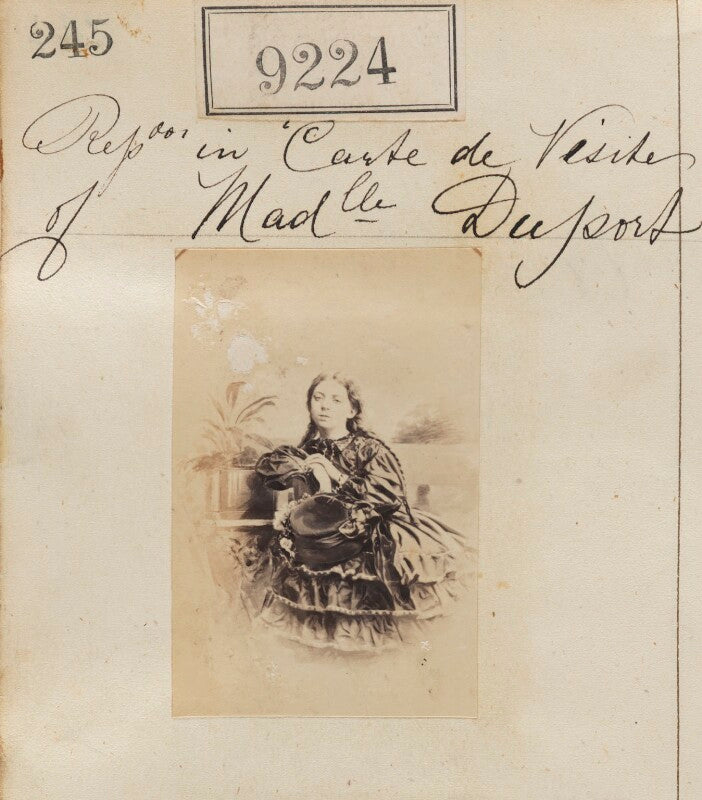 245
9224
Rep^oos in Carte de Visite
of Mad^lle Duport